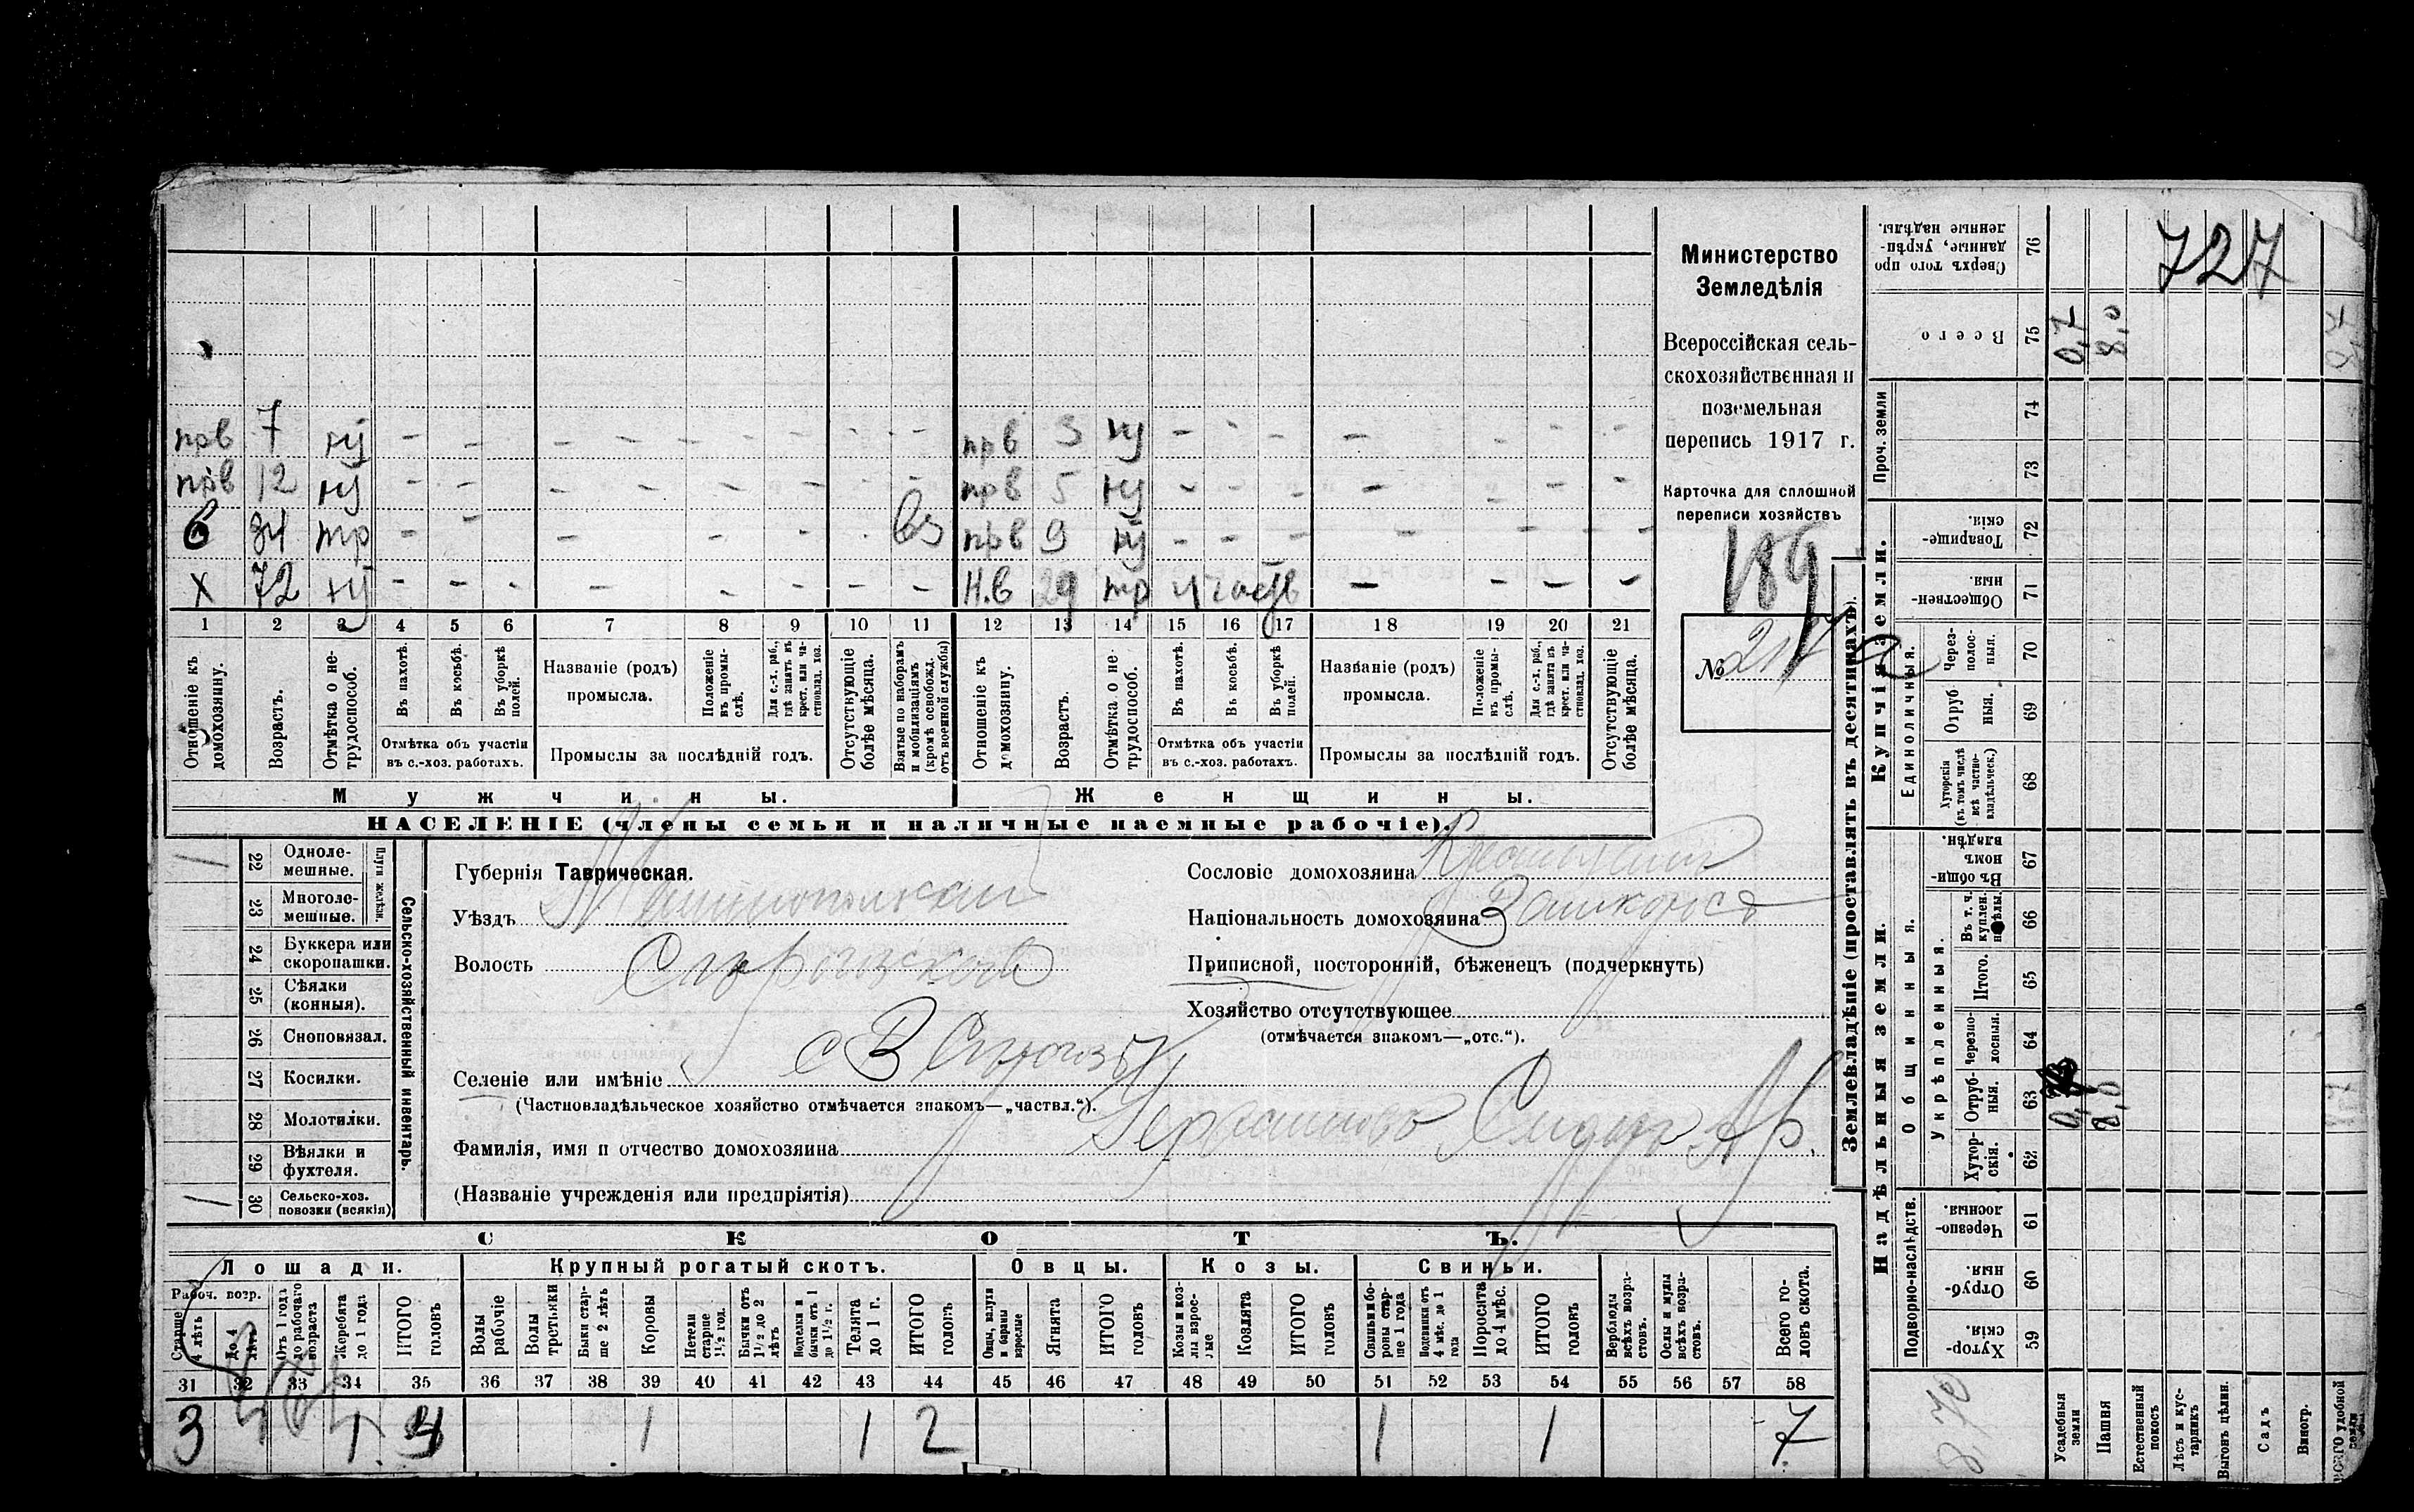 727
Министерство
Земледѣлія
Всероссійская сель-
скохозяйственная и
поземельная
перепись 1917 г.
Карточка для сплошной
переписи хозяйствъ
189
№ 217
прв 7 ну - - - - - - - - прв 3 ну - - - - - - -
прв 12 ну - - - - - - - - прв 5 ну - - - - - - -
б 34 тр - - - - - вз прв 9 ну - - - - - - -
х 72 ну - - - - - - - - Н.в 29 тр участв - - - -
1 2 3 4 5 6 7 8 9 10 11 12 13 14 15 16 17 18 19 20 21
Отношеніе къ домохозяину.
Возрастъ.
Отмѣтка о не-трудоспособ.
Въ пахотѣ.
Въ косьбѣ.
Въ уборкѣ полей.
Отмѣтка объ участіи
въ с.-хоз. работахъ.
Названіе (родъ)
промысла.
Положеніе въ промы-слѣ.
Для с.-х. раб., гдѣ занятъ въ крест. или ча-стновлад. хоз.
Промыслы за послѣдній годъ.
Отсутствующіе болѣе мѣсяца.
Взятые по наборамъ и мобилизаціямъ (кромѣ освобожд. отъ военной службы)
Отношеніе къ домохозяину.
Возрастъ.
Отмѣтка о не трудоспособ.
Въ пахотѣ.
Въ косьбѣ.
Въ уборкѣ полей.
Отмѣтка объ участіи
въ с.-хоз. работахъ.
Названіе (родъ)
промысла.
Положеніе въ промы-слѣ.
Для с.-х. раб., гдѣ занятъ въ крест. или ча-стновлад. хоз.
Промыслы за послѣдній годъ.
Отсутствующіе болѣе мѣсяца.
Мужчины.
Женщины.
НАСЕЛЕНІЕ (члены семьи и наличные наемные рабочіе).
Сельско-хозяйственный инвентарь.
Плуги желѣзн.
22 Одноле-мешные.
23 Многоле-мешные.
24 Буккера или скоропашки.
25 Сѣялки (конныя).
26 Сноповязал.
27 Косилки.
28 Молотилки.
29 Вѣялки и фухтеля.
30 Сельско-хоз. повозки (всякія)
Губернія Таврическая.
Уѣздъ
Волость
Селеніе или имѣніе
(Частновладѣльческое хозяйство отмѣчается знакомъ—„частвл.“).
Фамилія, имя и отчество домохозяина
(Названіе учрежденія или предпріятія)
Сословіе домохозяина
Національность домохозяина
Приписной, посторонній, бѣженецъ (подчеркнуть)
Хозяйство отсутствующее
(отмѣчается знакомъ—„отс.“).
СКОТЪ.
Лошади.
Крупный рогатый скотъ.
Овцы.
Козы.
Свиньи.
Рабоч. возр.
Старше 4 лѣтъ
До 4 лѣтъ
Отъ 1 года до рабочаго возраста
Жеребята до 1 года
ИТОГО головъ
Волы рабочіе
Волы третьяки
Быки стар-ше 2 лѣтъ
Коровы
Нетели старше 1½ год.
Бычки отъ 1½ до 2 лѣтъ
Телята до 1 г.
ИТОГО головъ
Ягнята
ИТОГО головъ
Козы и коз-лы взрос-лые
Козлята
ИТОГО головъ
Свиньи и бо-ровы стар-ше 1 года
Поросята до 4 мѣс.
ИТОГО головъ
Верблюды всѣхъ возра-стовъ.
Ослы и мулы всѣхъ возра-стовъ.
Всего го-ловъ скота.
31 32 33 34 35 36 37 38 39 40 41 42 43 44 45 46 47 48 49 50 51 52 53 54 55 56 57 58
3 1 4 1 1 2 1 1 7
Землевладѣніе (проставлять въ десятинахъ).
Купчія земли.
Надѣльныя земли.
Проч. земли
Сверхъ того про данные, укрѣп-ленные надѣлы. 76
Всего 75
74
73
Товарище-скія. 72
Обществен-ныя 71
Единоличныя.
Через-полос-ныя. 70
Отруб ныя. 69
Хуторскія (въ томъ числѣ всѣ частно-владѣльческ.) 68
Общинныя.
Въ общи-номъ владѣн. 67
Укрѣпленныя.
66
Итого. 65
Черезпо-лосныя. 64
Отруб-ныя. 63
Хутор-скія. 62
Подворно-наслѣдств.
Черезпо-лосныя. 61
Отруб-ныя. 60
Хутор-скія. 59
Усадебныя земли
Пашня
Естественный покосъ
Лѣсъ и кус-тарникъ
Выгонъ цѣлин.
Садъ
Виногр.
ВСЕГО удобной земли
0,7
8,0
8,0